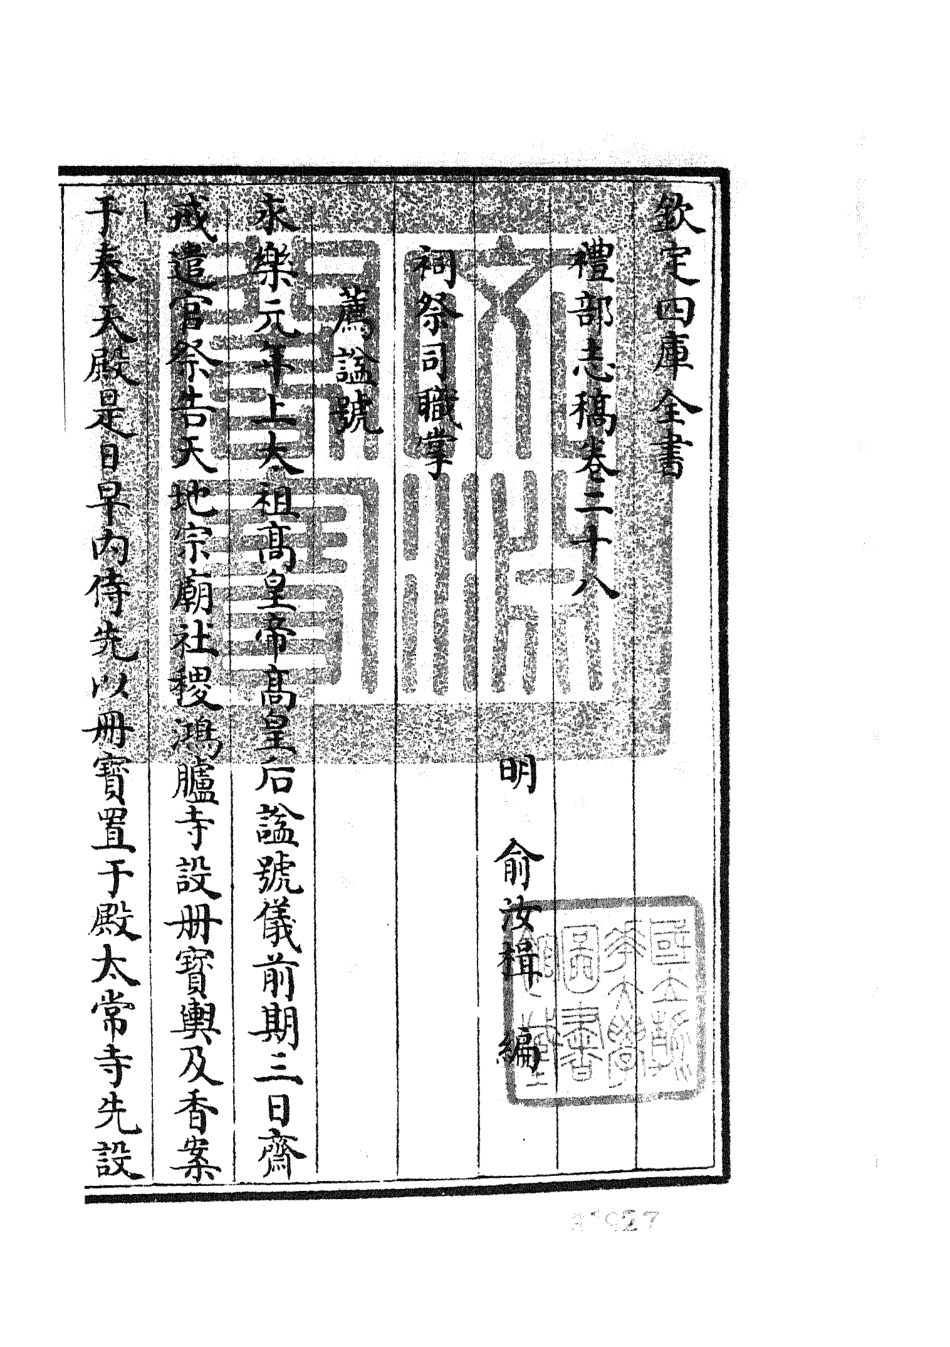 欽定四庫全書
禮部志稿卷二十八
明 俞汝楫 編
祠祭司職掌
薦諡號
永樂元年上太祖高皇帝高皇后諡號儀前期三日齋
戒遣官祭告天地宗廟社稷鴻臚寺設冊寶輿及香案
于奉天殿是日早內侍先以冊寶置于殿太常寺先設
文淵閣寶
國立浙江大學圖書館藏